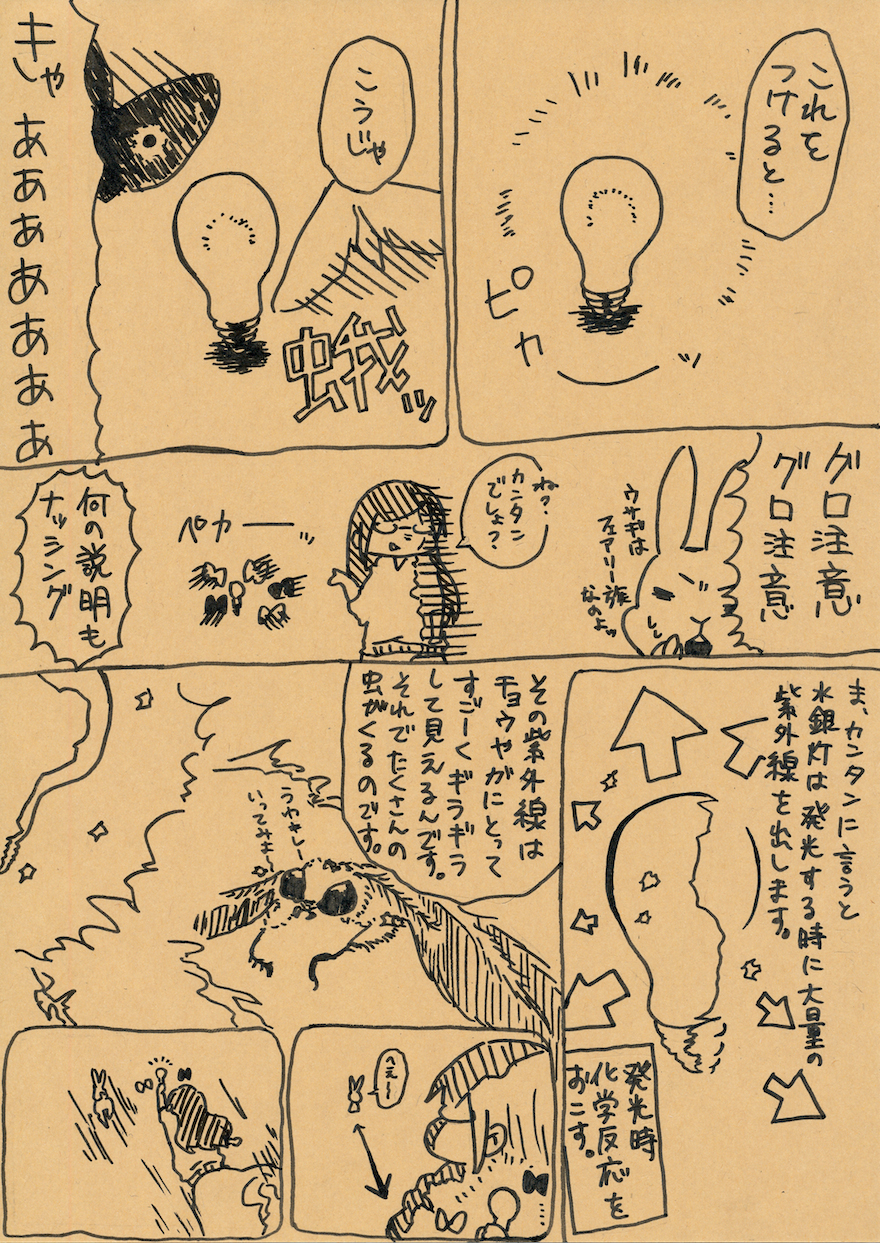 これを
つけると…
ピカッ
こうじゃ
蛾ッ
キャああああああああ
グロ注意
グロ注意
ウサギは
フェアリー族
なのよッ
ね?
カンタン
でしょ?
ペカーー
何の説明も
ナッシング
ま、カンタンに言うと
水銀灯は発光する時に大量の
紫外線を出します。
発光時
化学反応を
おこす。
その紫外線は
チョウやガにとって
すごーくギラギラ
して見えるんです。
それでたくさんの
虫がくるのです。
うわキレー
いってみよ〜
へえー